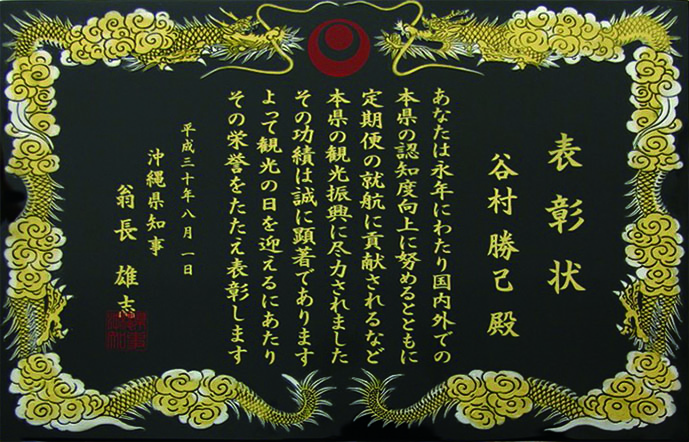 表彰状
谷村勝己殿
あなたは永年にわたり国内外での
本県の認知度向上に努めるとともに
定期便の就航に貢献されるなど
本県の観光振興に尽力されました
その功績は誠に顕著であります
よって観光の日を迎えるにあたり
その栄誉をたたえ表彰します
平成三十年八月一日
沖縄県知事
翁長雄志